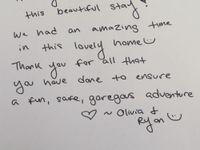 this beautiful stay
We had an amazing time
in this lovely home
Thank you for all that
you have done to ensure
a fun, safe, goregas adventure
~ Olivia &
Ryan